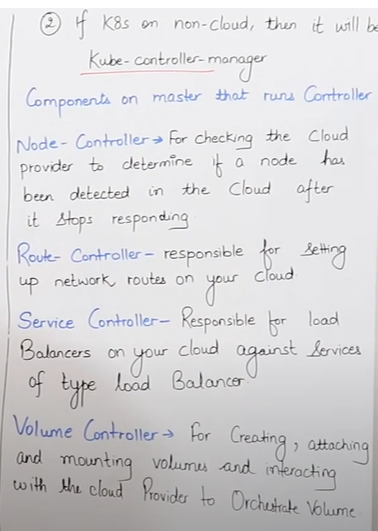 ② If K8s on non-cloud, then it will be
Kube-controller-manager
Components on master that runs Controller
Node-Controller → For checking the Cloud
provider to determine if a node has
been detected in the Cloud after
it stops responding
Route-Controller - responsible for setting
up network, routes on your cloud.
Service Controller - Responsible for load
Balancers on your cloud against Services
of type load Balancer.
Volume Controller → For Creating, attaching
and mounting volumes and interacting
with the cloud Provider to Orchestrate Volume